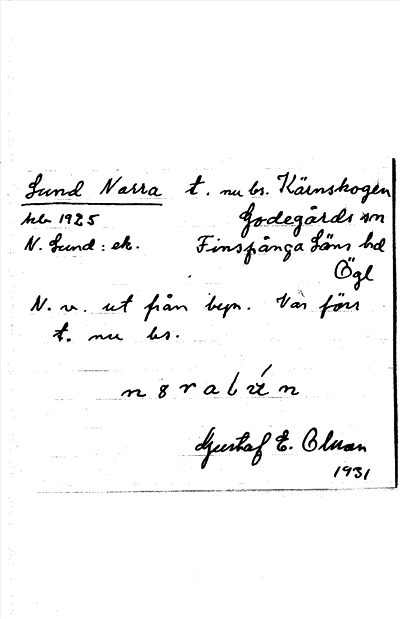 Lund Norra t. nu bs. Kärnskogen
skr 1925 Godegårds sn
N. Lund: ek. Finspånga Läns hd
Ögl
N. v. ut från byn. Var förr
t. nu bs.
Gustaf E. Olsson
1931